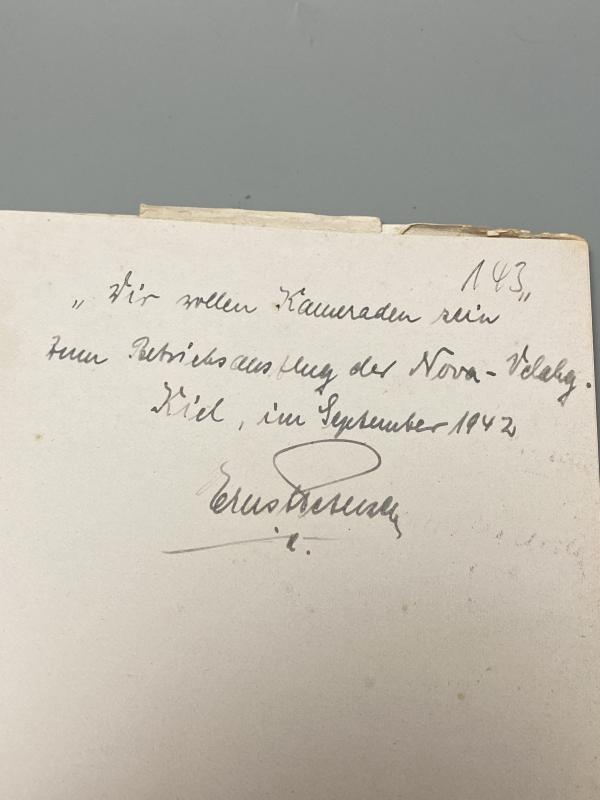 143
„Wir wollen Kameraden sein"
zum Betriebsausflug der Nova-
Kiel, im September 1942
Ernst